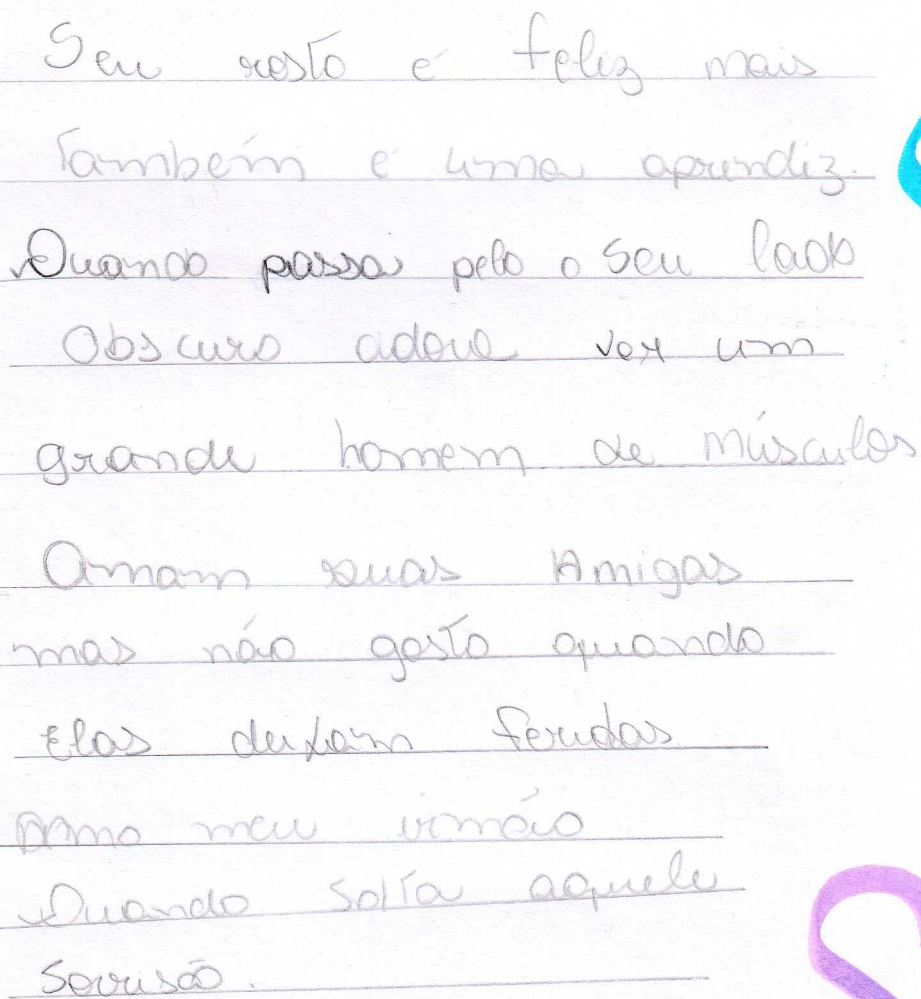 Seu rosto é feliz mais
também é uma aprendiz.
Quando passa pelo o seu lado
Obscuro adora ver um
grande homem de músculos
Amam suas Amigas
mas não gosto quando
Elas deixam feridas
Amo meu irmão
Quando solta aquele
Sorrisão.